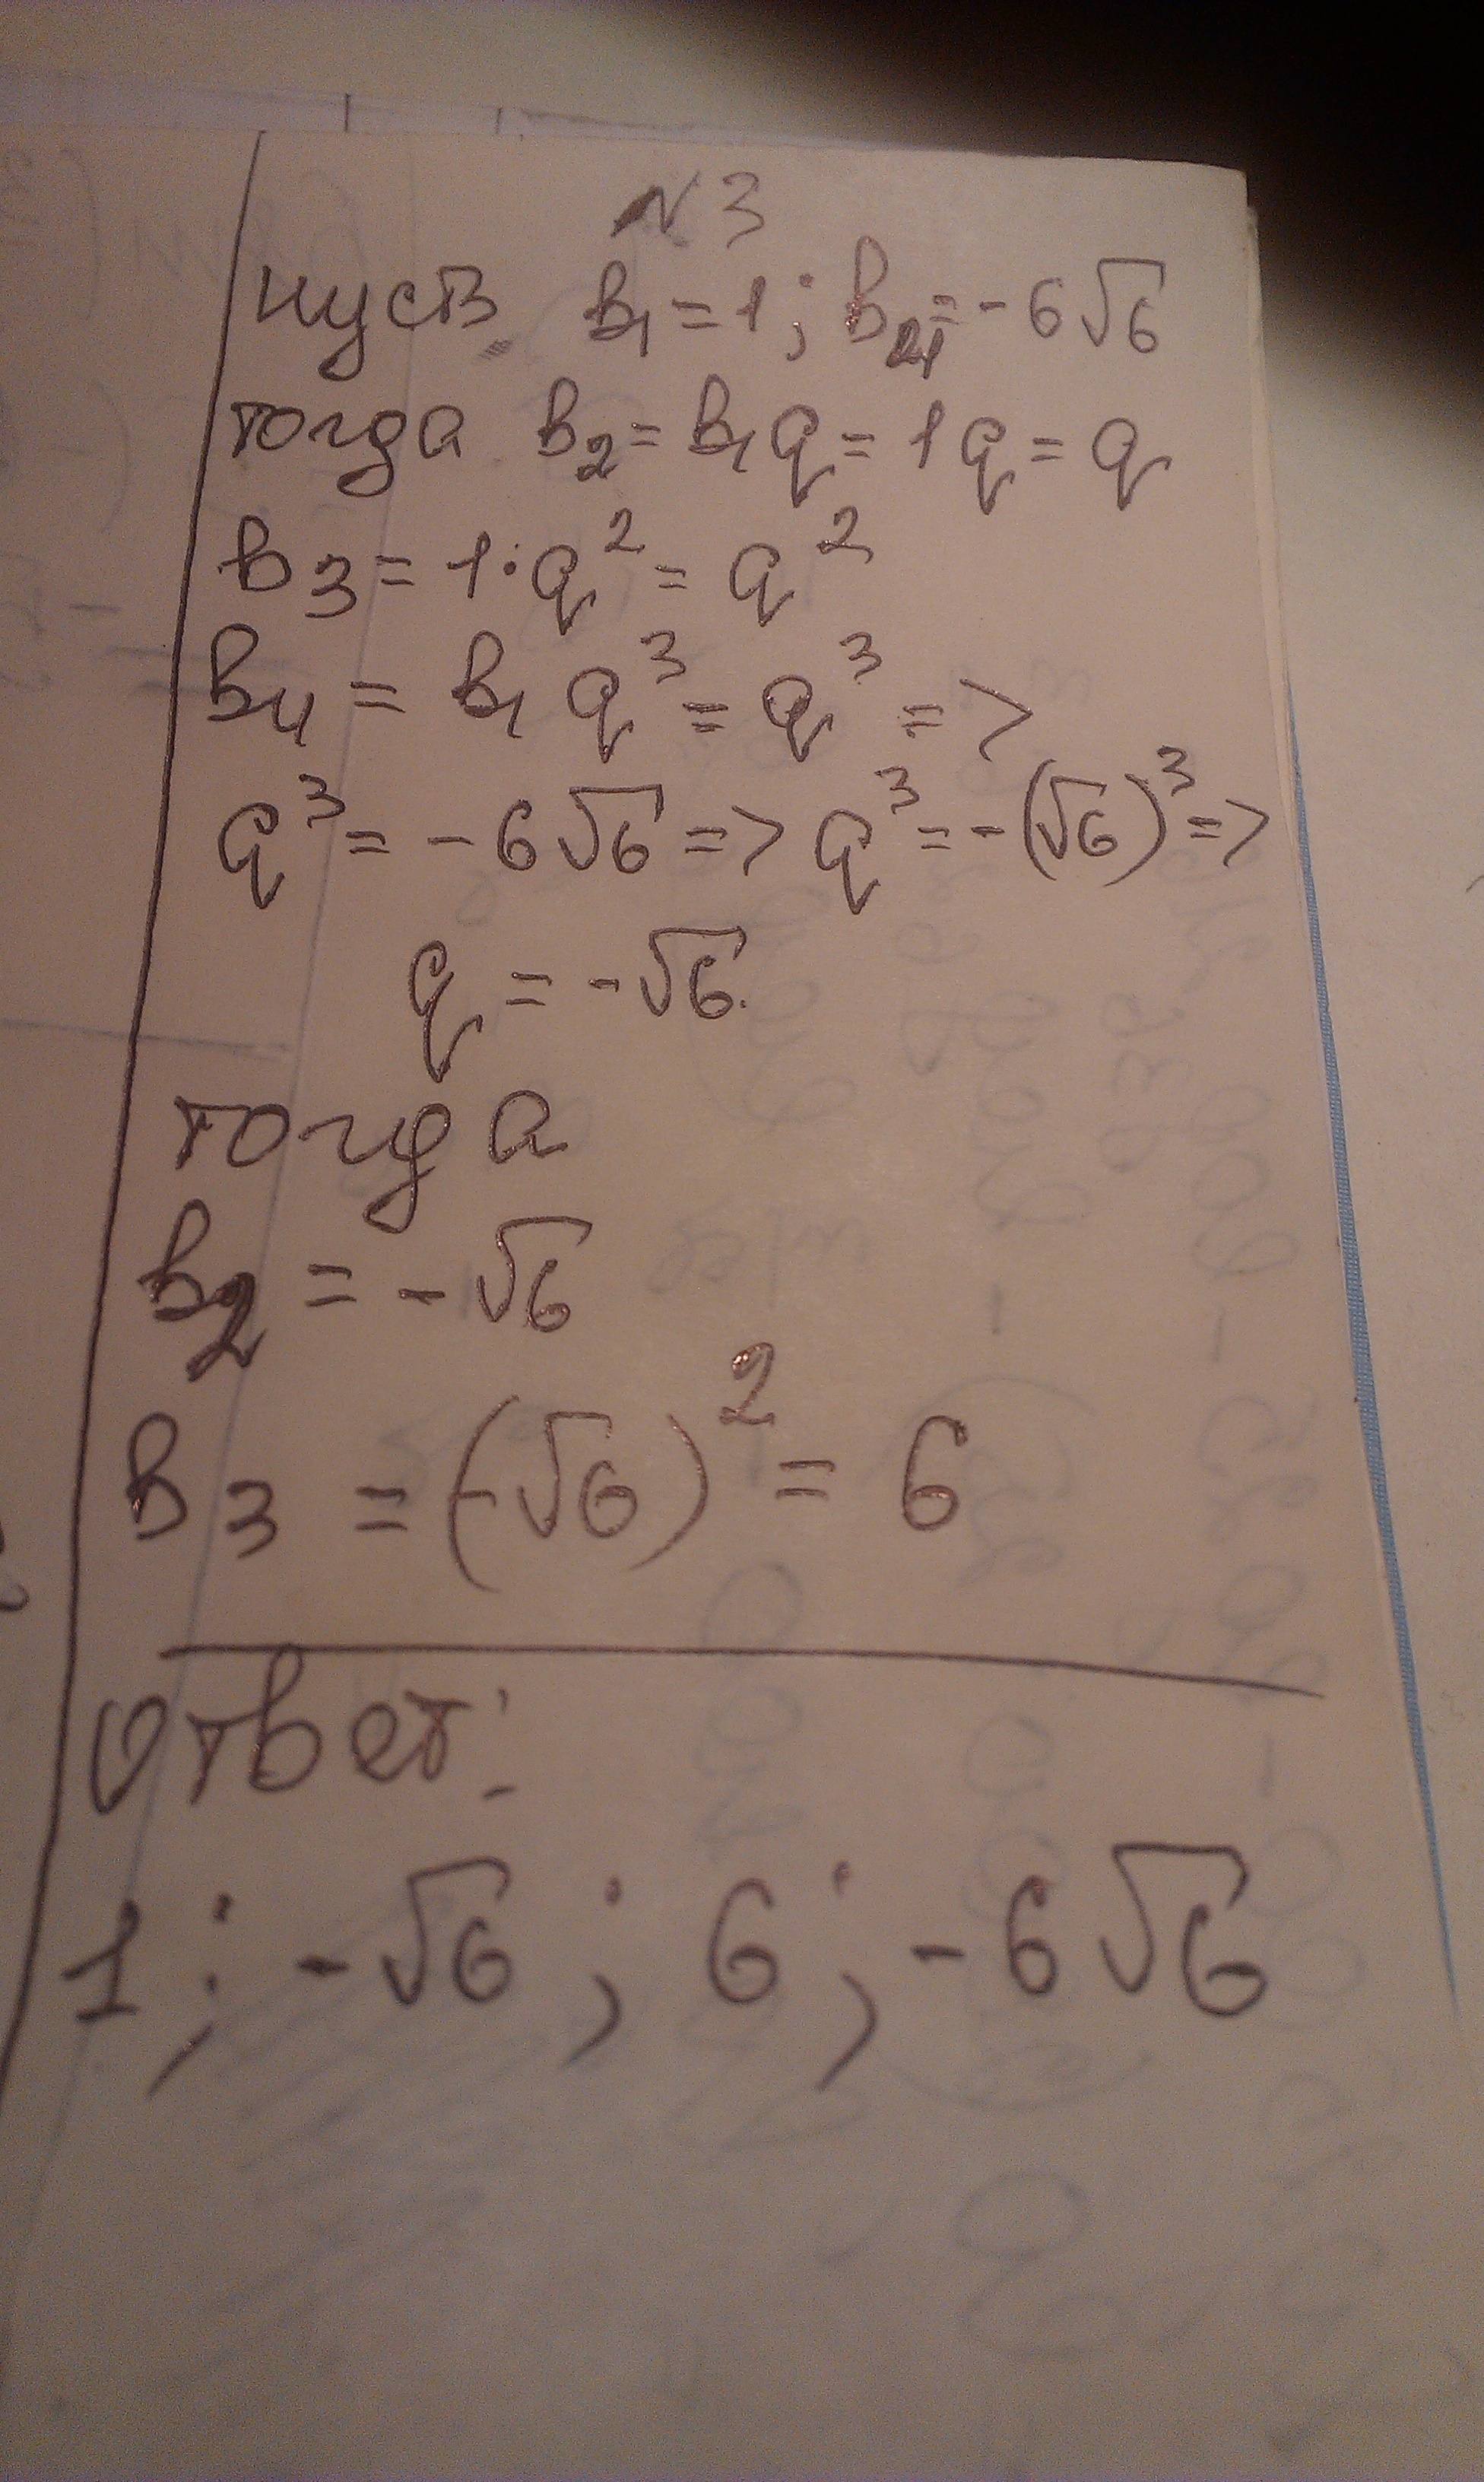 N 3
пусть b₁ = 1; b₄ = -6√6
тогда b₂ = b₁q = 1q = q
b₃ = 1·q² = q²
b₄ = b₁q³ = q³ =>
q³ = -6√6 => q³ = -(√6)³ =>
q = -√6.
тогда
b₂ = -√6
b₃ = (-√6)² = 6
Ответ:
1; -√6; 6; -6√6